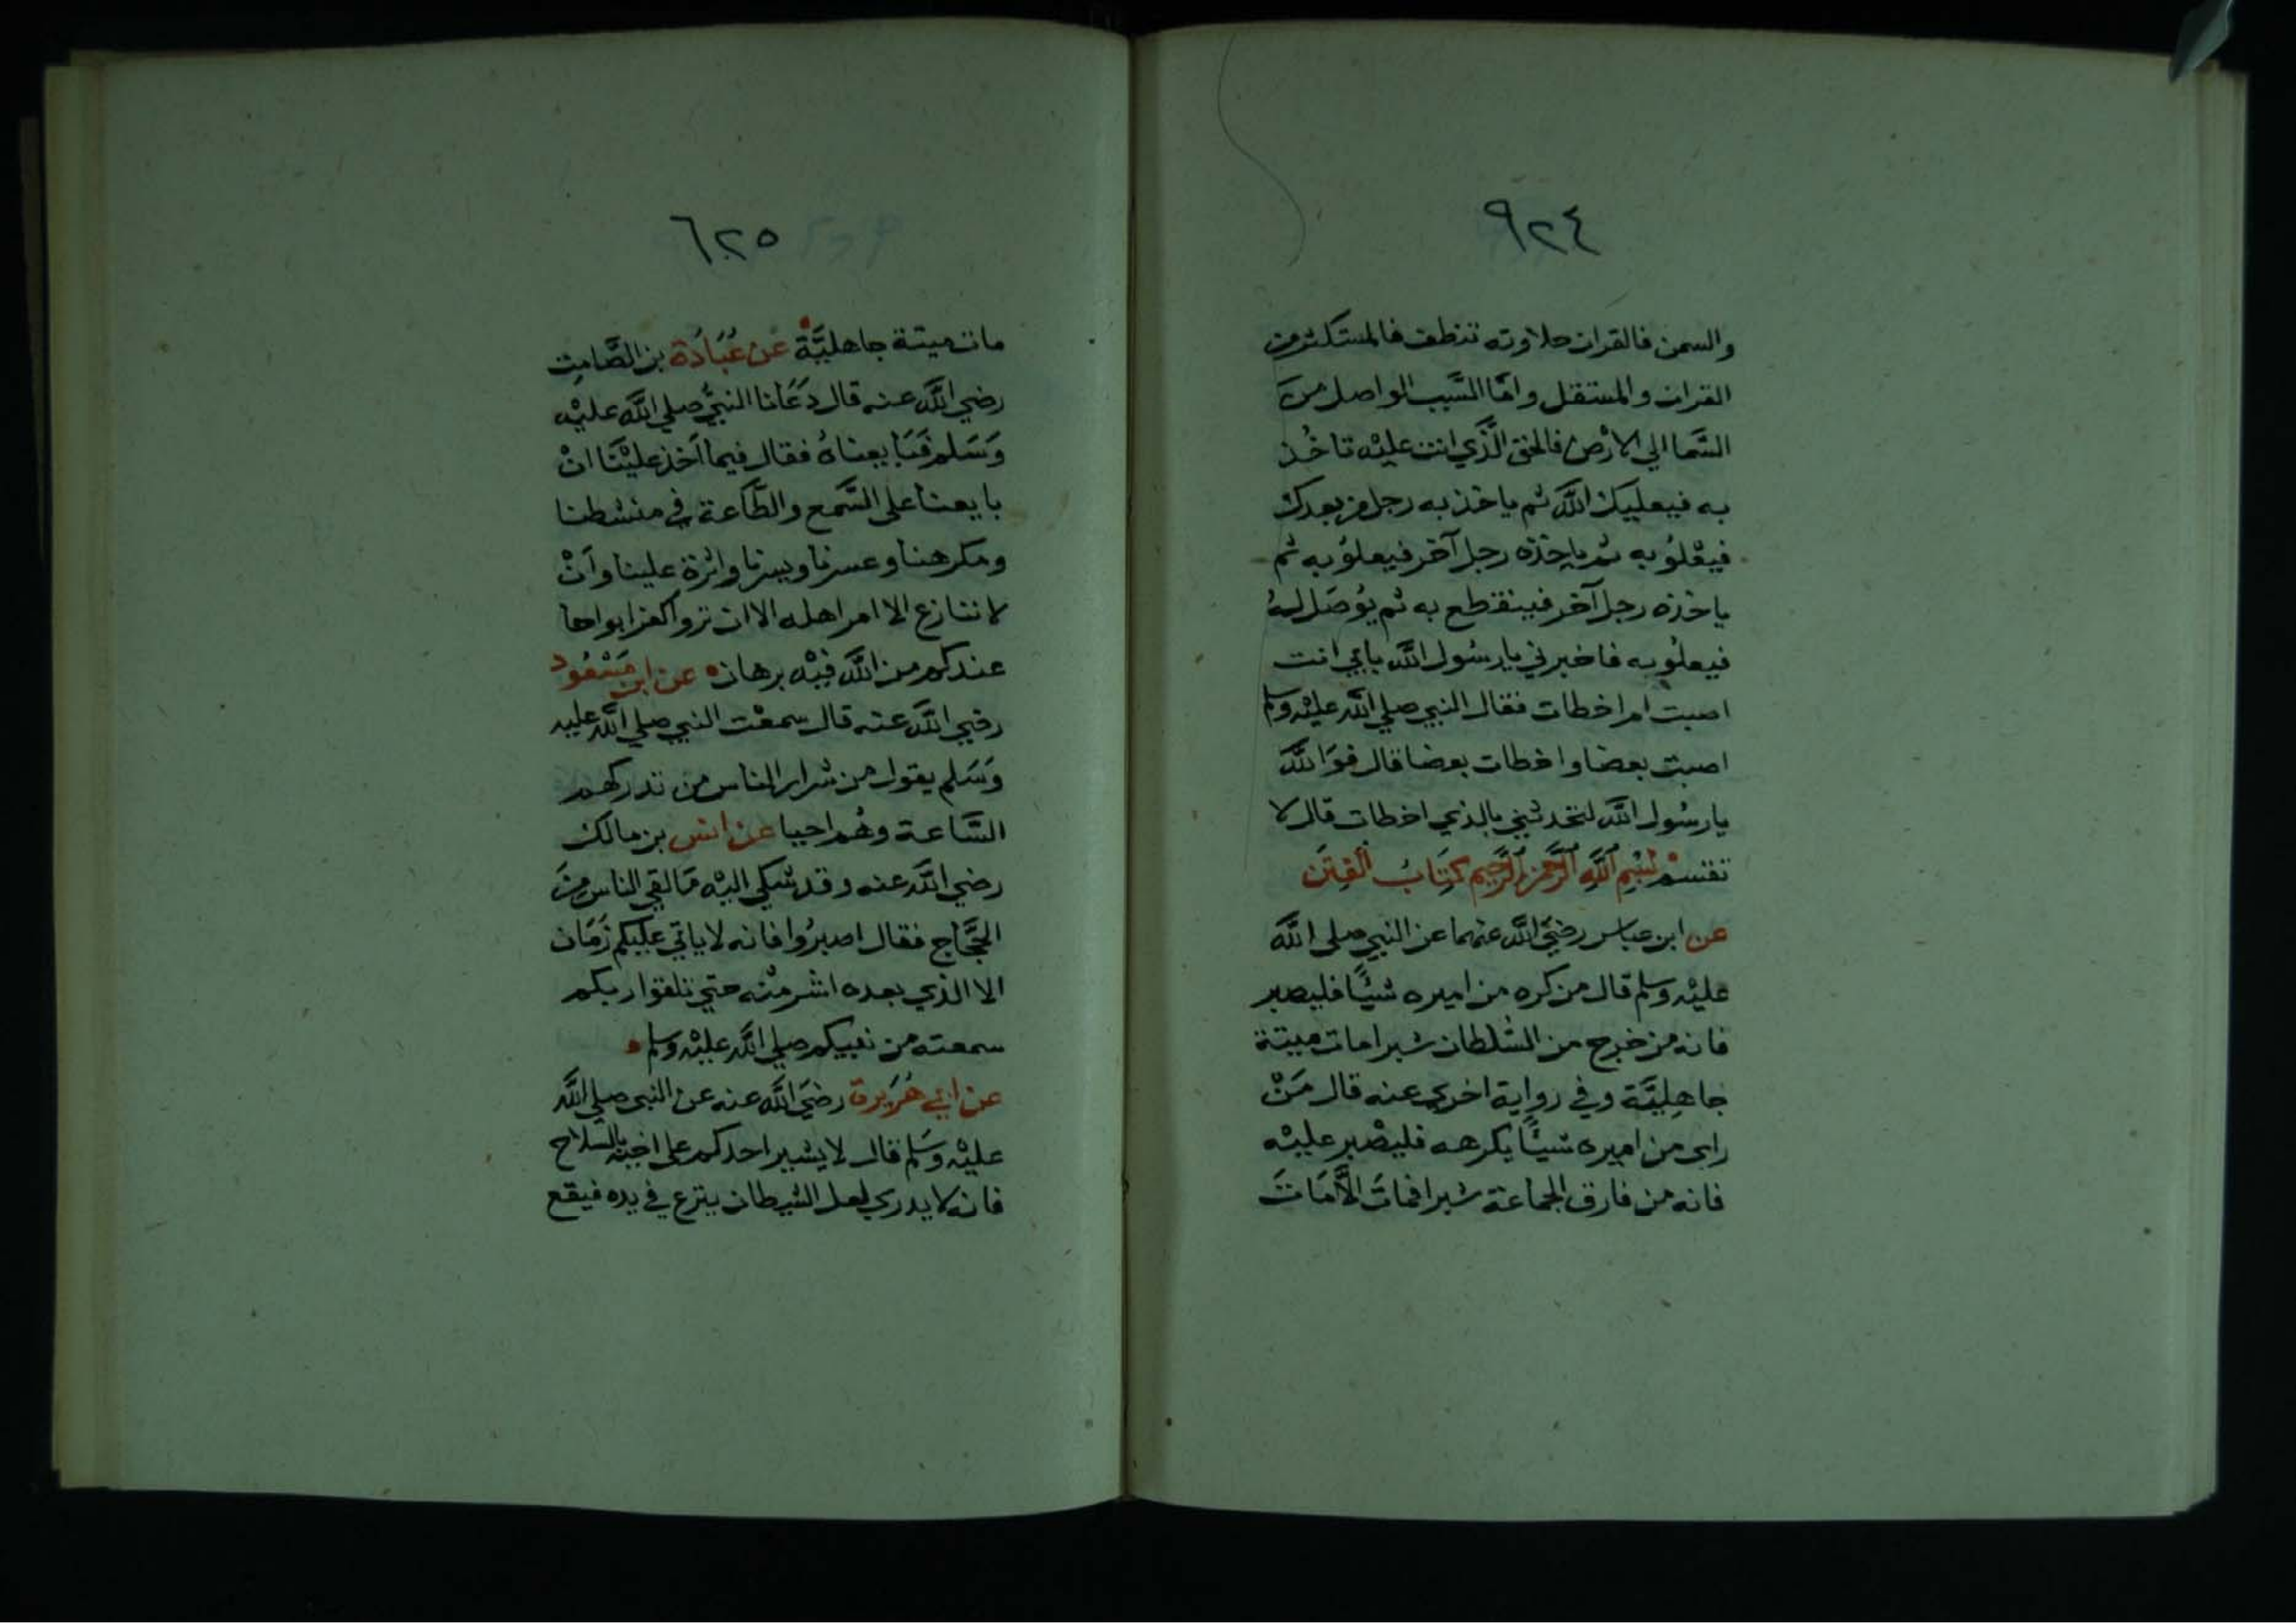 ٩٢٤
والسمن فالقران حلاوته تنطف فالمستكثر من
القران والمستقل وامّا السَّبب الواصل منَ
السَّما الي الارْض فالحق الَّذي انت عليْه تاخُذ
به فيعليك اللَّه ثم ياخذ به رجل من بعدك
فيعْلوُ به ثم ياخذه رجل آخر فيعلوُ به ثم
ياخذه رجل آخر فينقطع به ثم يوُصَل لهُ
فيعلوُ به فاخبرني يا رسُول اللَّه بابي انت
اصبت ام اخطات فقال النبي صلي اللَّه عليْه وسلم
اصبت بعضا واخطات بعضا قال فوَ اللَّه
يا رسُول اللَّه لتحدثني بالذي اخطات قال لا
تقتسمْ بسْمِ اللَّهِ الرَّحمَنِ الرَّحِيمِ كتَابُ الفِتَن
عن ابن عباس رضيَ اللَّه عنهما عن النبي صلى اللَّه
عليْه وسلم قال من كره من اميره شيْئًا فليصبر
فانه من خرج من السُّلطان شبرا مات ميتة
جاهِليَّة وفي رواية اخري عنه قال مَنْ
راى من اميره شيئًا يكرهه فليصْبر عليْه
فانه من فارق الجماعة شبرا فماتَ الَّا مَاتَ
٦٢٥
مات ميتة جاهليَّة عن عُبَادَة بن الصَّامِت
رضي اللَّه عنه قال دَعَانا النبيُّ صلي اللَّه عليْه
وَسَلم فبَايعناهُ فقال فيما اَخذ عليْنَا انْ
بايعنا على السَّمع والطَّاعة في منشطنا
ومكرهنا وعسرنا ويسرنا واثرة علينا وَانْ
لا ننازع الا امر اهله الا ان تروا كفرا بواحا
عندكم من اللَّه فيْه برهان عن ابن مَسْعُود
رضي اللَّه عنه قال سمعْت النبي صلي اللَّه عليه
وَسَلم يقول من شرار الناس من تدركهم
السَّاعة وهُم احيا عن انس بن مالك
رضي اللَّه عنه وقد شكي اليْه مَا لقي الناس منَ
الحجَّاج فقال اصبرُوا فانه لا ياتي عليكم زمَان
الا الذي بعده اشر منْه حتي تلقوا ربكم
سمعته من نبيكم صلي اللَّه عليْه وسلم
عن ابي هُرَيرة رضيَ اللَّه عنه عن النبي صلي اللَّه
عليْه وسَلم قال لا يشير احدكم على اخيه بالسّلاح
فانه لا يدري لعل الشيطان ينزع في يده فيقع